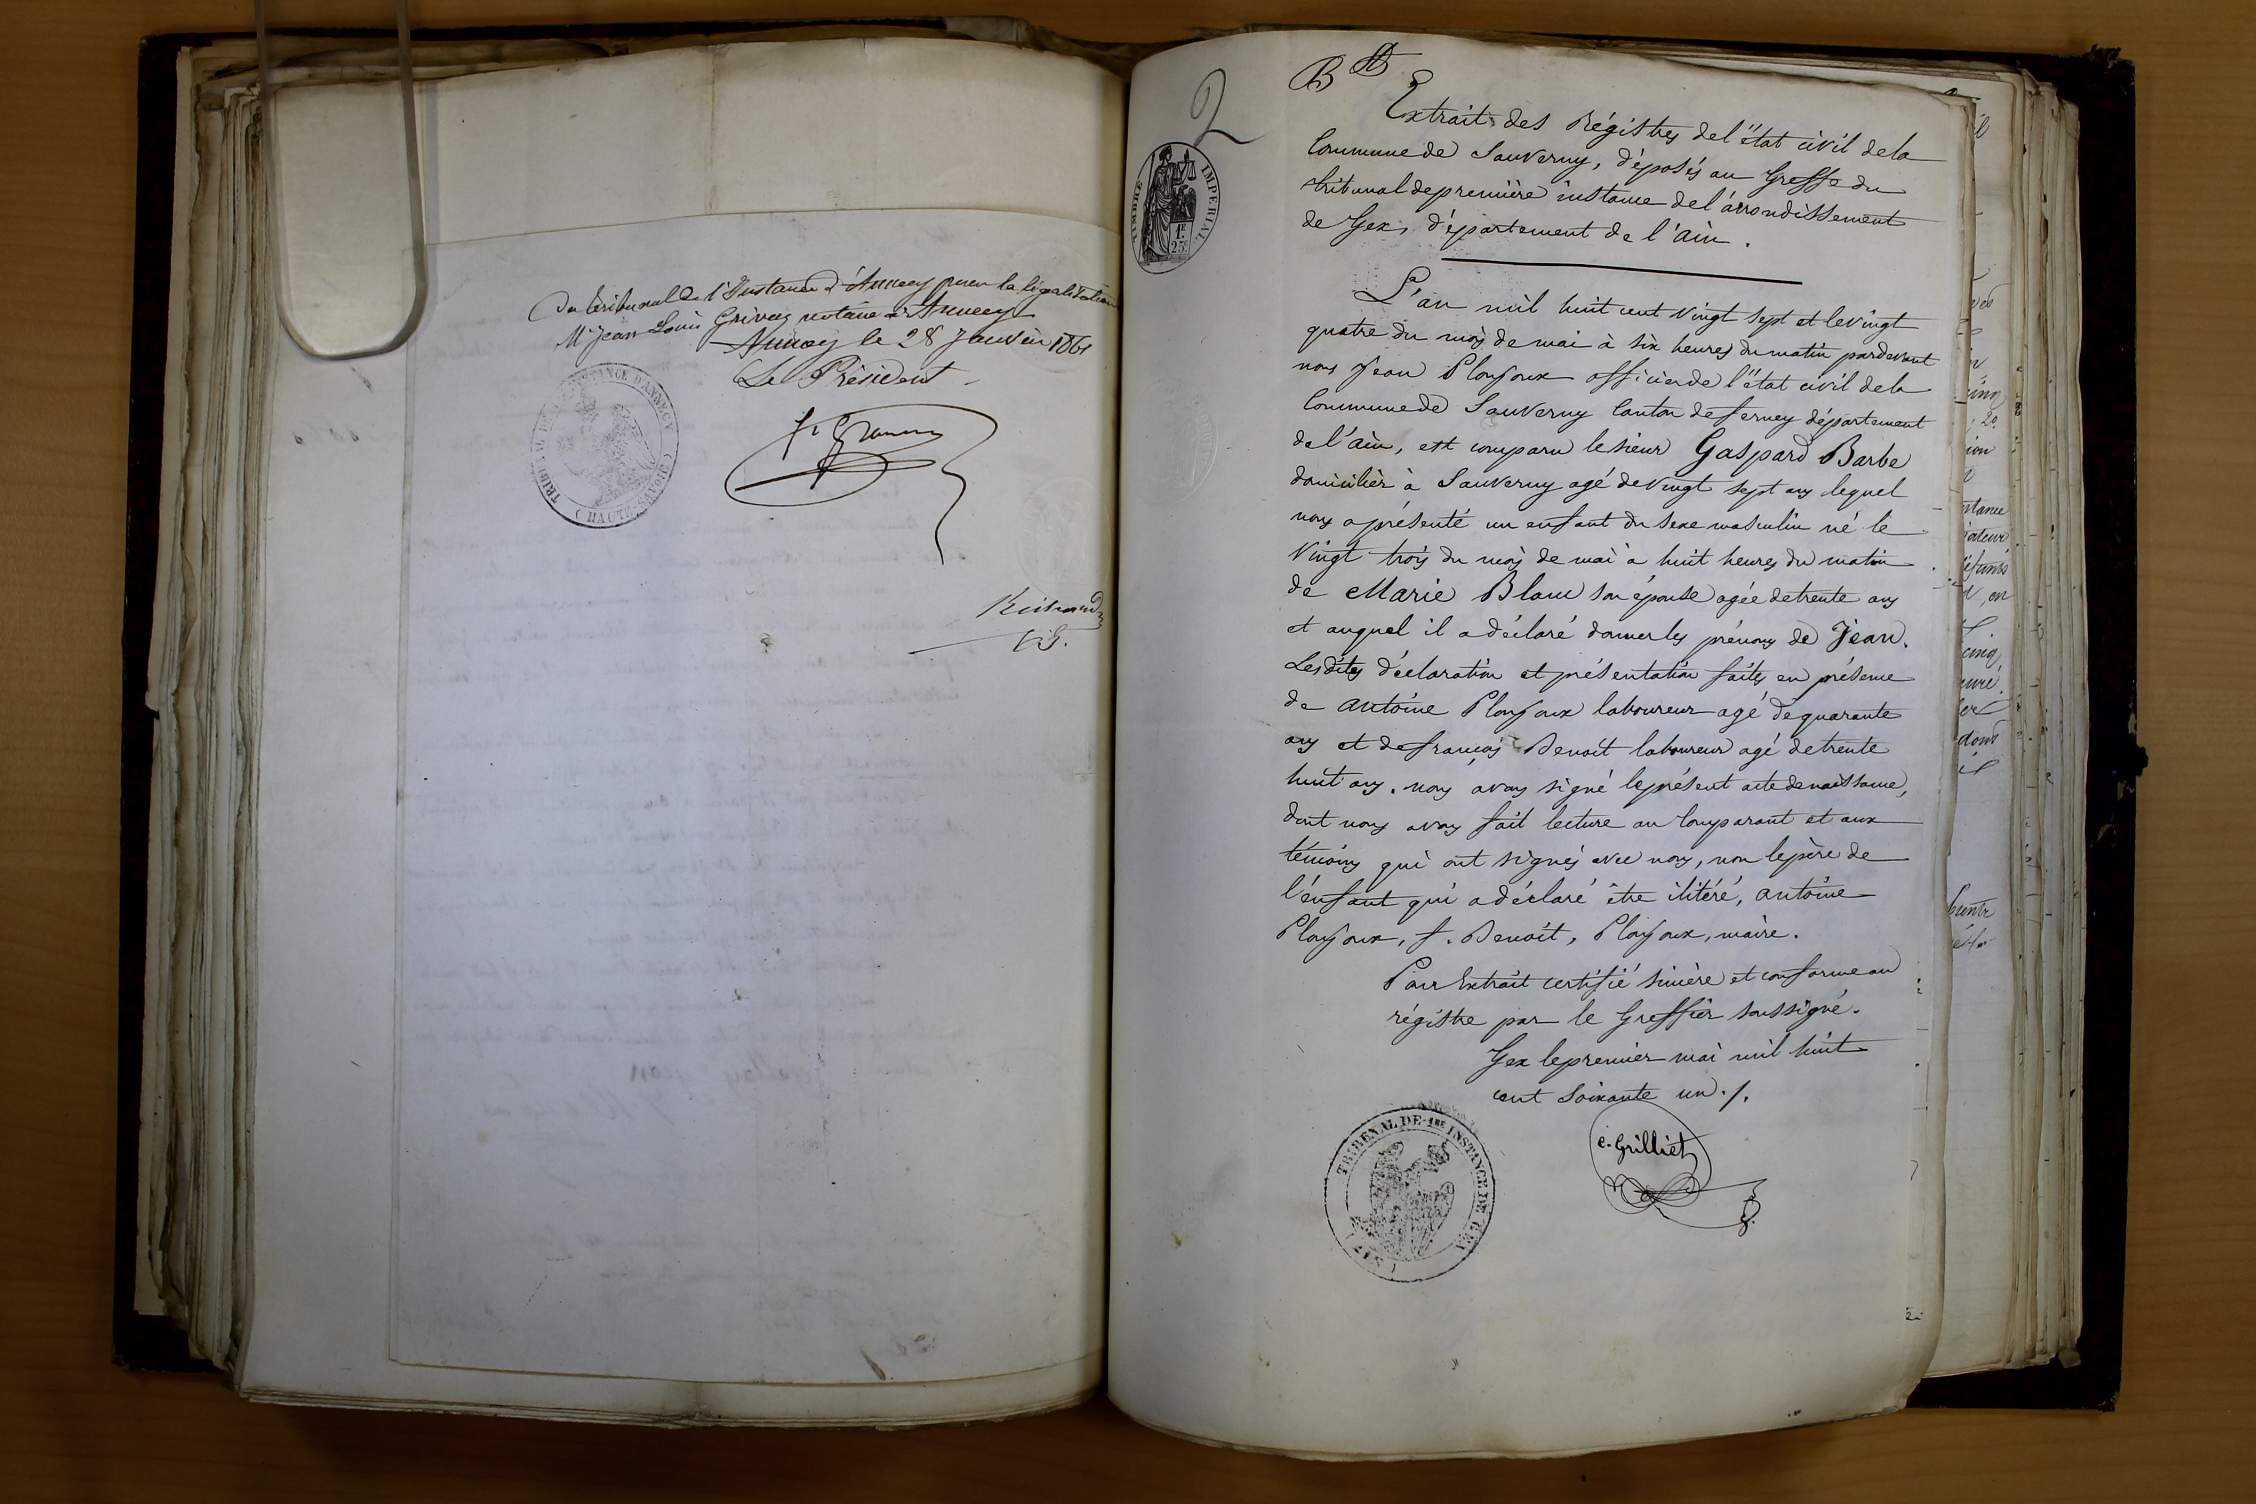 du tribunal de 1re Instance d'Annecy pour la légalisation
Me Jean Louis Grivaz notaire à Annecy
Annecy le 28 Janvier 1861
Le Président
TRIBUNAL DE 1RE INSTANCE D'ANNECY
(HAUTE-SAVOIE)
2
TIMBRE IMPÉRIAL
1F.
25C.
Extrait des Régistres de l'état civil de la
Commune de Sauverny, déposés au Greffe du
tribunal de première instance de l'arrondissement
de Gex, département de l'ain.
L'an mil huit cent vingt sept et le vingt
quatre du mois de mai à six heures du matin pardevant
nous Jean Ployoux officier de l'état civil de la
Commune de Sauverny Canton de ferney département
de l'ain, est comparu le sieur Gaspard Barbe
domicilier à Sauverny agé de vingt sept ans lequel
nous a présenté un enfant du sexe masculin né le
Vingt trois du mois de mai à huit heures du matin
de Marie Blanc son épouse agée de trente ans
et auquel il a déclaré donner les prénoms de Jean.
Lesdites déclaration et présentation faites en présence
de antoine Ployoux laboureur agé de quarante
ans et de françois Benoit laboureur agé de trente
huit ans. nous avons signé le présent acte de naissance,
dont nous avons fait lecture au Comparant et aux
témoins qui ont signés avec nous, non le père de
l'enfant qui a déclaré être ilitéré, antoine
Ployoux, f. Benoit, Ployoux, maire.
Pour Extrait certifié sincère et conforme au
régistre par le Greffier soussigné.
Gex le premier mai mil huit
cent soixante un ./.
TRIBUNAL DE 1RE INSTANCE DE GEX
(AIN)
C. Grilliet